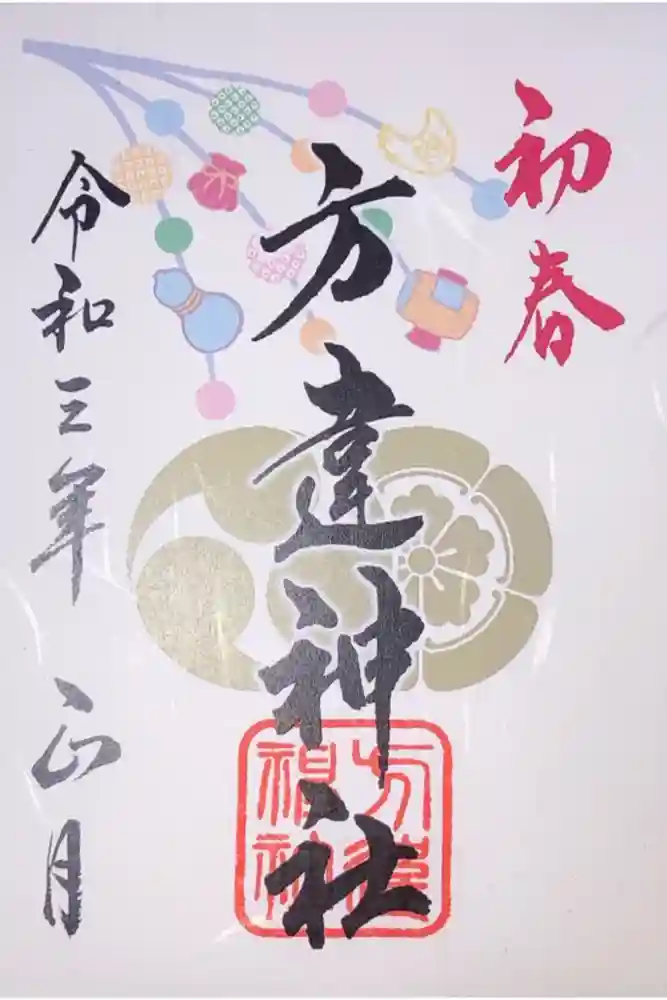 初春
方違神社
令和三年 正月
方違
神社